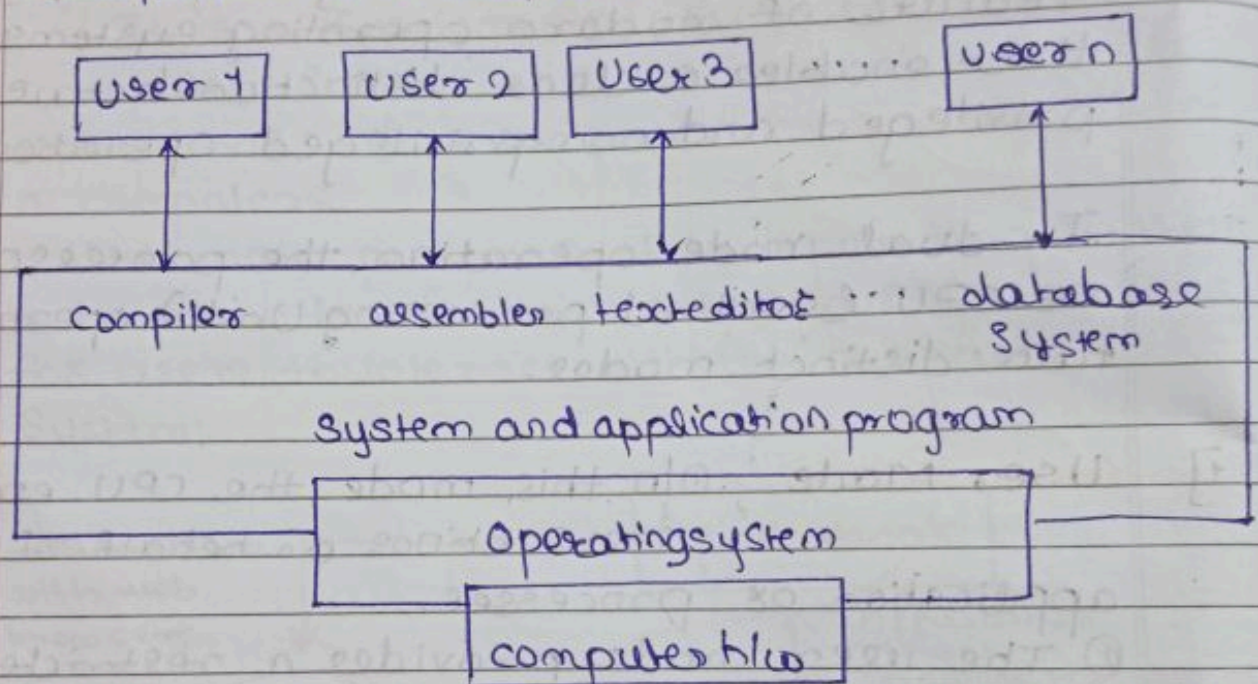 User 1 User 2 User 3 ..... User n
compiler assembler texteditor ... database
system
system and application program
Operatingsystem
computer h/w